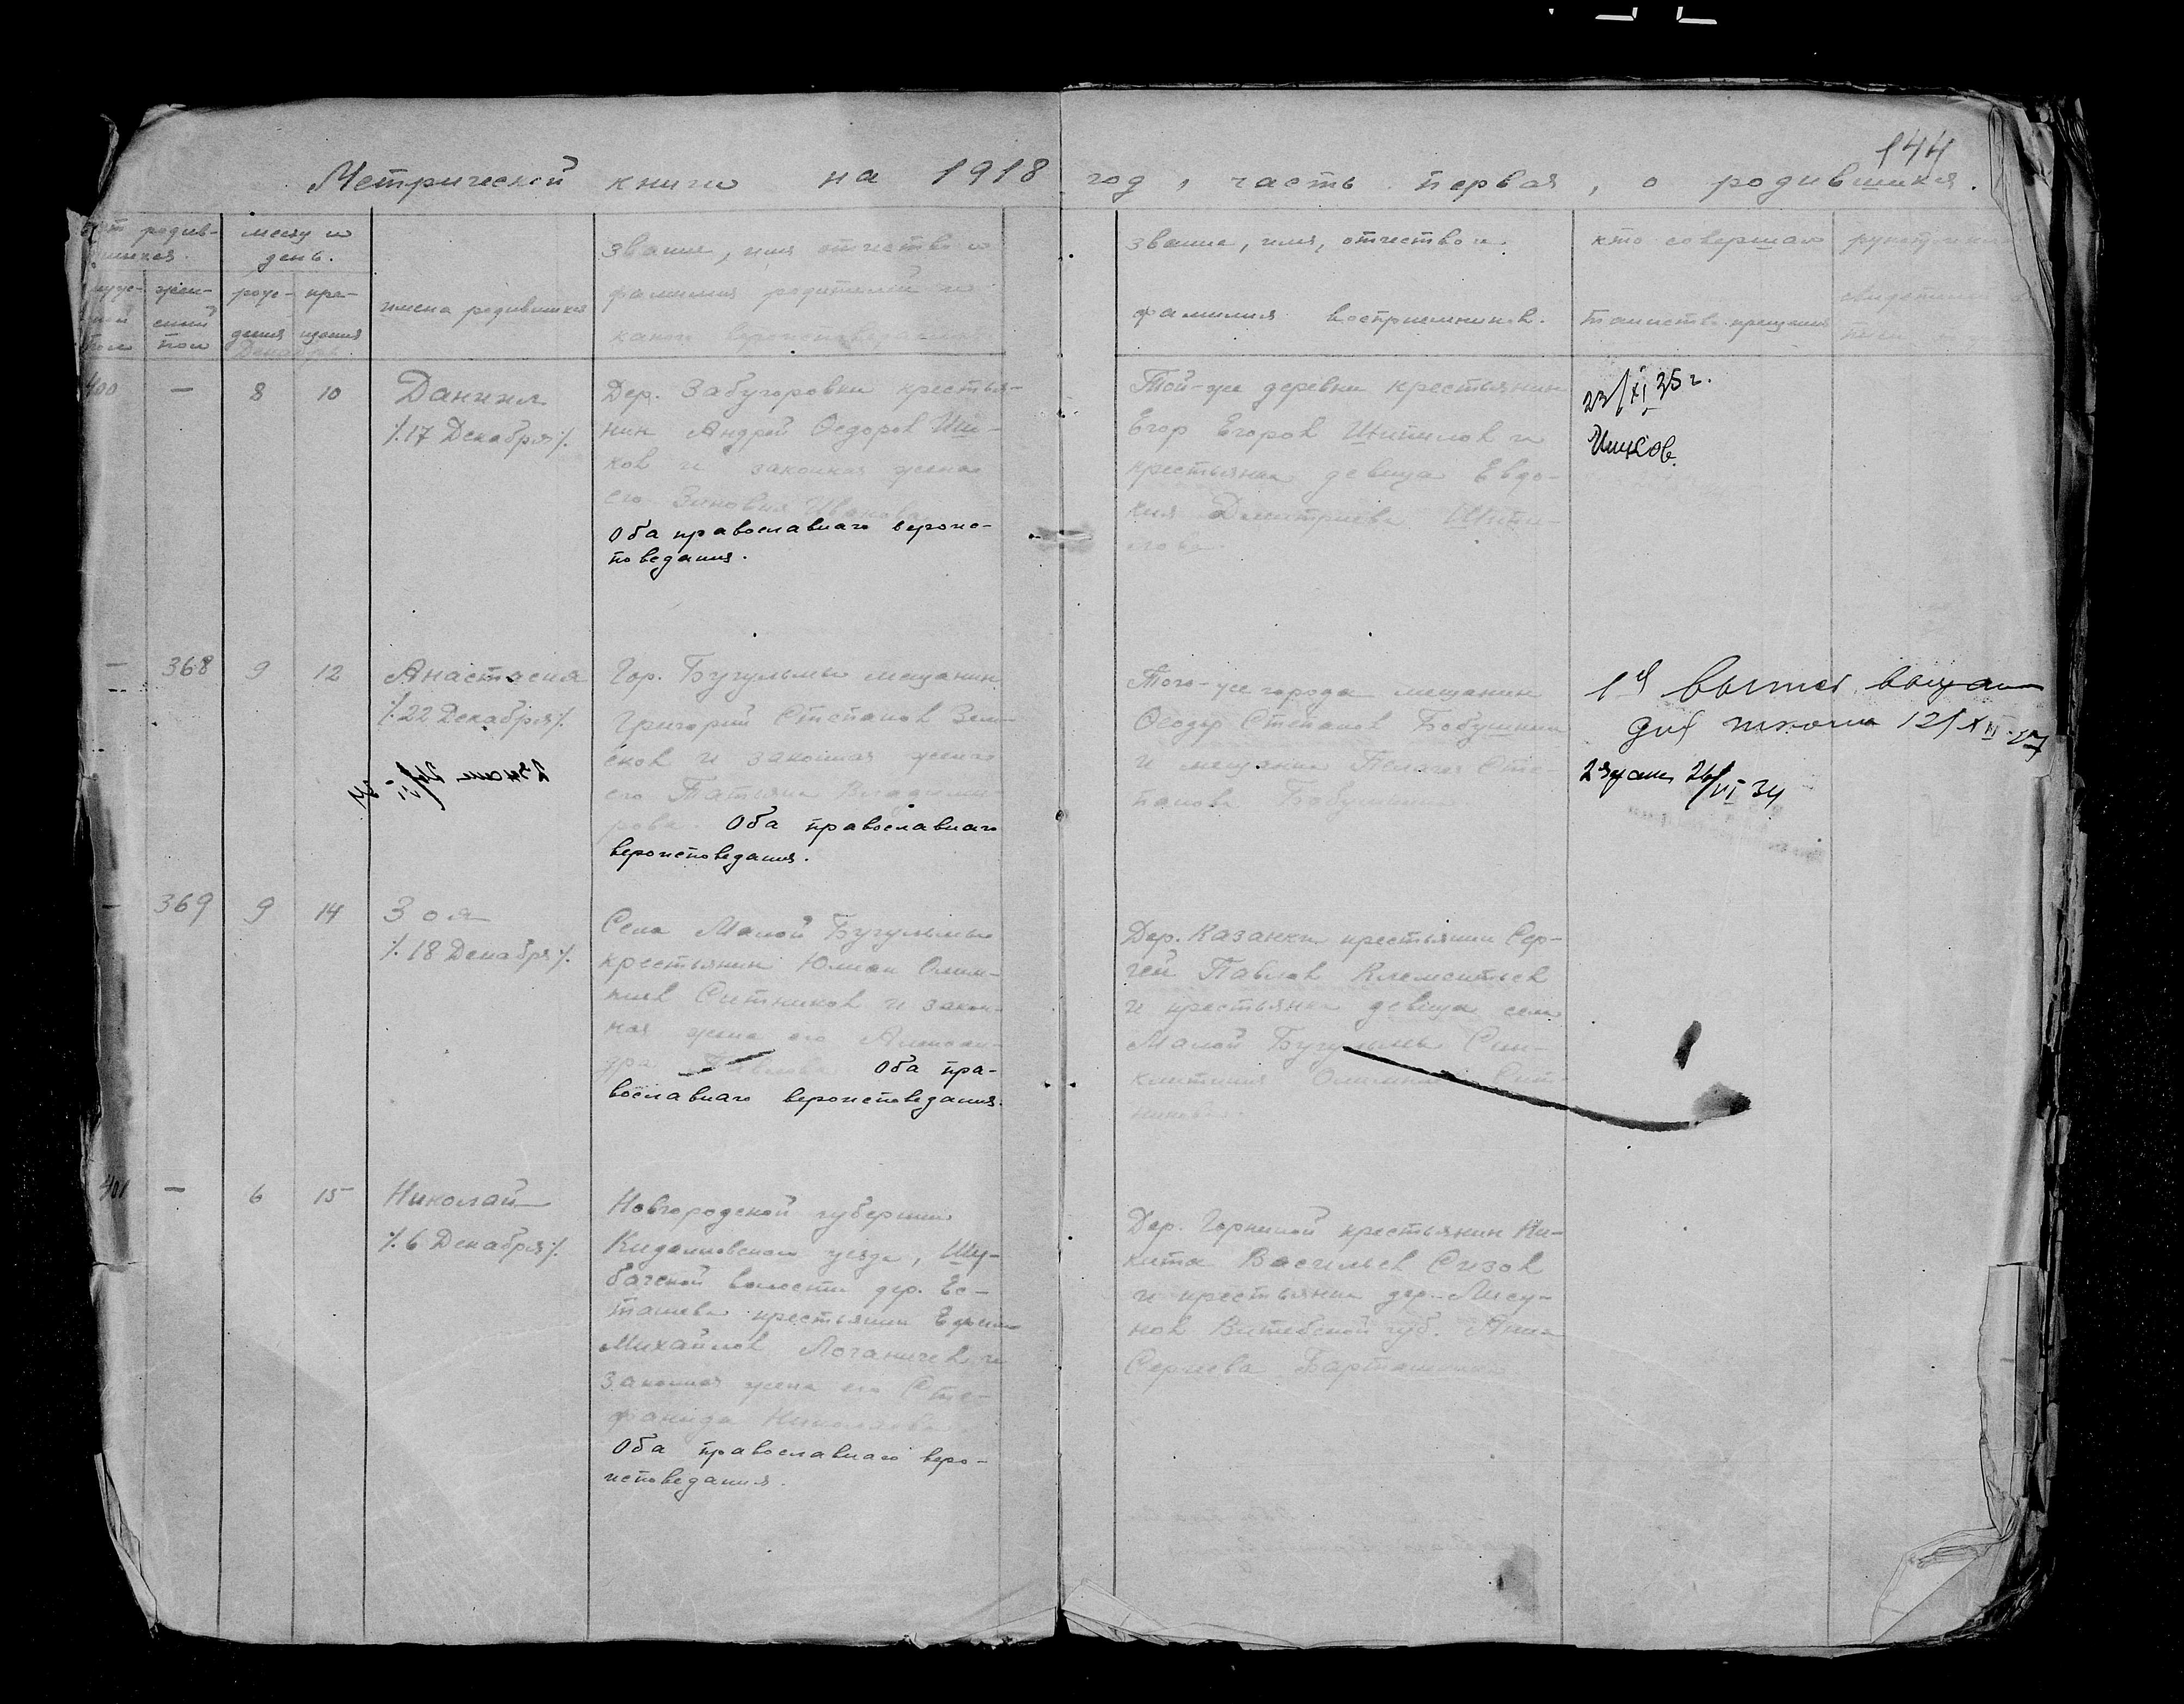 144
Метрической книги на 1918 год, часть первая, о родившихся.
родив-
месяц и
день.
имена родившихся
звание, имя отчество и
фамилия родителей и
звание, имя, отчество и
фамилия восприемников.
кто совершал
таинство крещения
жен-
ский
пол
рож-
дения
кре-
щения
Декабрь
400 — 8 10
Даниил
/.17 Декабря/.
Дер. Забугоровки крестья-
нин Андрей Федоров Иш-
ков и законная жена
его Зиновия Иванова
Оба православнаго вероис-
поведания.
Той-же деревни крестьянин
Егор Егоров Шипилов и
крестьянка девица Евдо-
кия Димитриева Шипи
лова.
23/XI 35 г.
Ишков.
— 368 9 12
Анастасия
/.22 Декабря/.
Гор. Бугульмы мещанин
Григорий Степанов Зем-
сков и законная жена
его Татьяна Владими-
рова. Оба православнаго
вероисповедания.
Того-же города мещанин
Феодор Степанов Бобушкин
и мещанка Пелагия Сте-
панова Бобушкина
1я
для школы 12/XII-27
26/VI 34
— 369 9 14
Зоя
/.18 Декабря/.
Села Малой Бугульмы
крестьянин Юлиан Олим-
пиев Ситников и закон-
ная жена его Алексан-
дра Павлова Оба пра-
вославнаго вероисповедания.
Дер. Казанки крестьянин Сер-
гей Павлов Клементьев
и крестьянка девица села
Малой Бугульмы Син-
клитикия Олимпиева Сит
никова.
401 — 6 15
Николай
/.6 Декабря/.
Новгородской губернии
уезда, Шу-
бачской волости дер. Ес-
ташева крестьянин Ефим
Михайлов Логаничев и
законная жена его Сте-
фанида Николаева
Оба православнаго веро-
исповедания.
Дер. Горкиной крестьянин Ни-
кита Васильев Сизов
и крестьянка дер.
нов Витебской губ. Анна
Сергиева